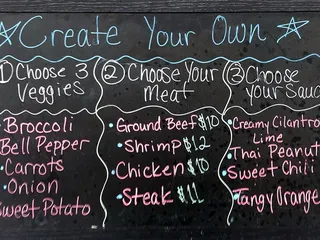 Create Your Own
1 Choose 3
Veggies
Broccoli
Bell Pepper
Carrots
Onion
Sweet Potato
2 Choose Your
Meat
Ground Beef $10
Shrimp $12
Chicken $10
Steak $12
3 Choose
your Sauc
Creamy Cilantro
Lime
Thai Peanut
Sweet Chili
Tangy Orange